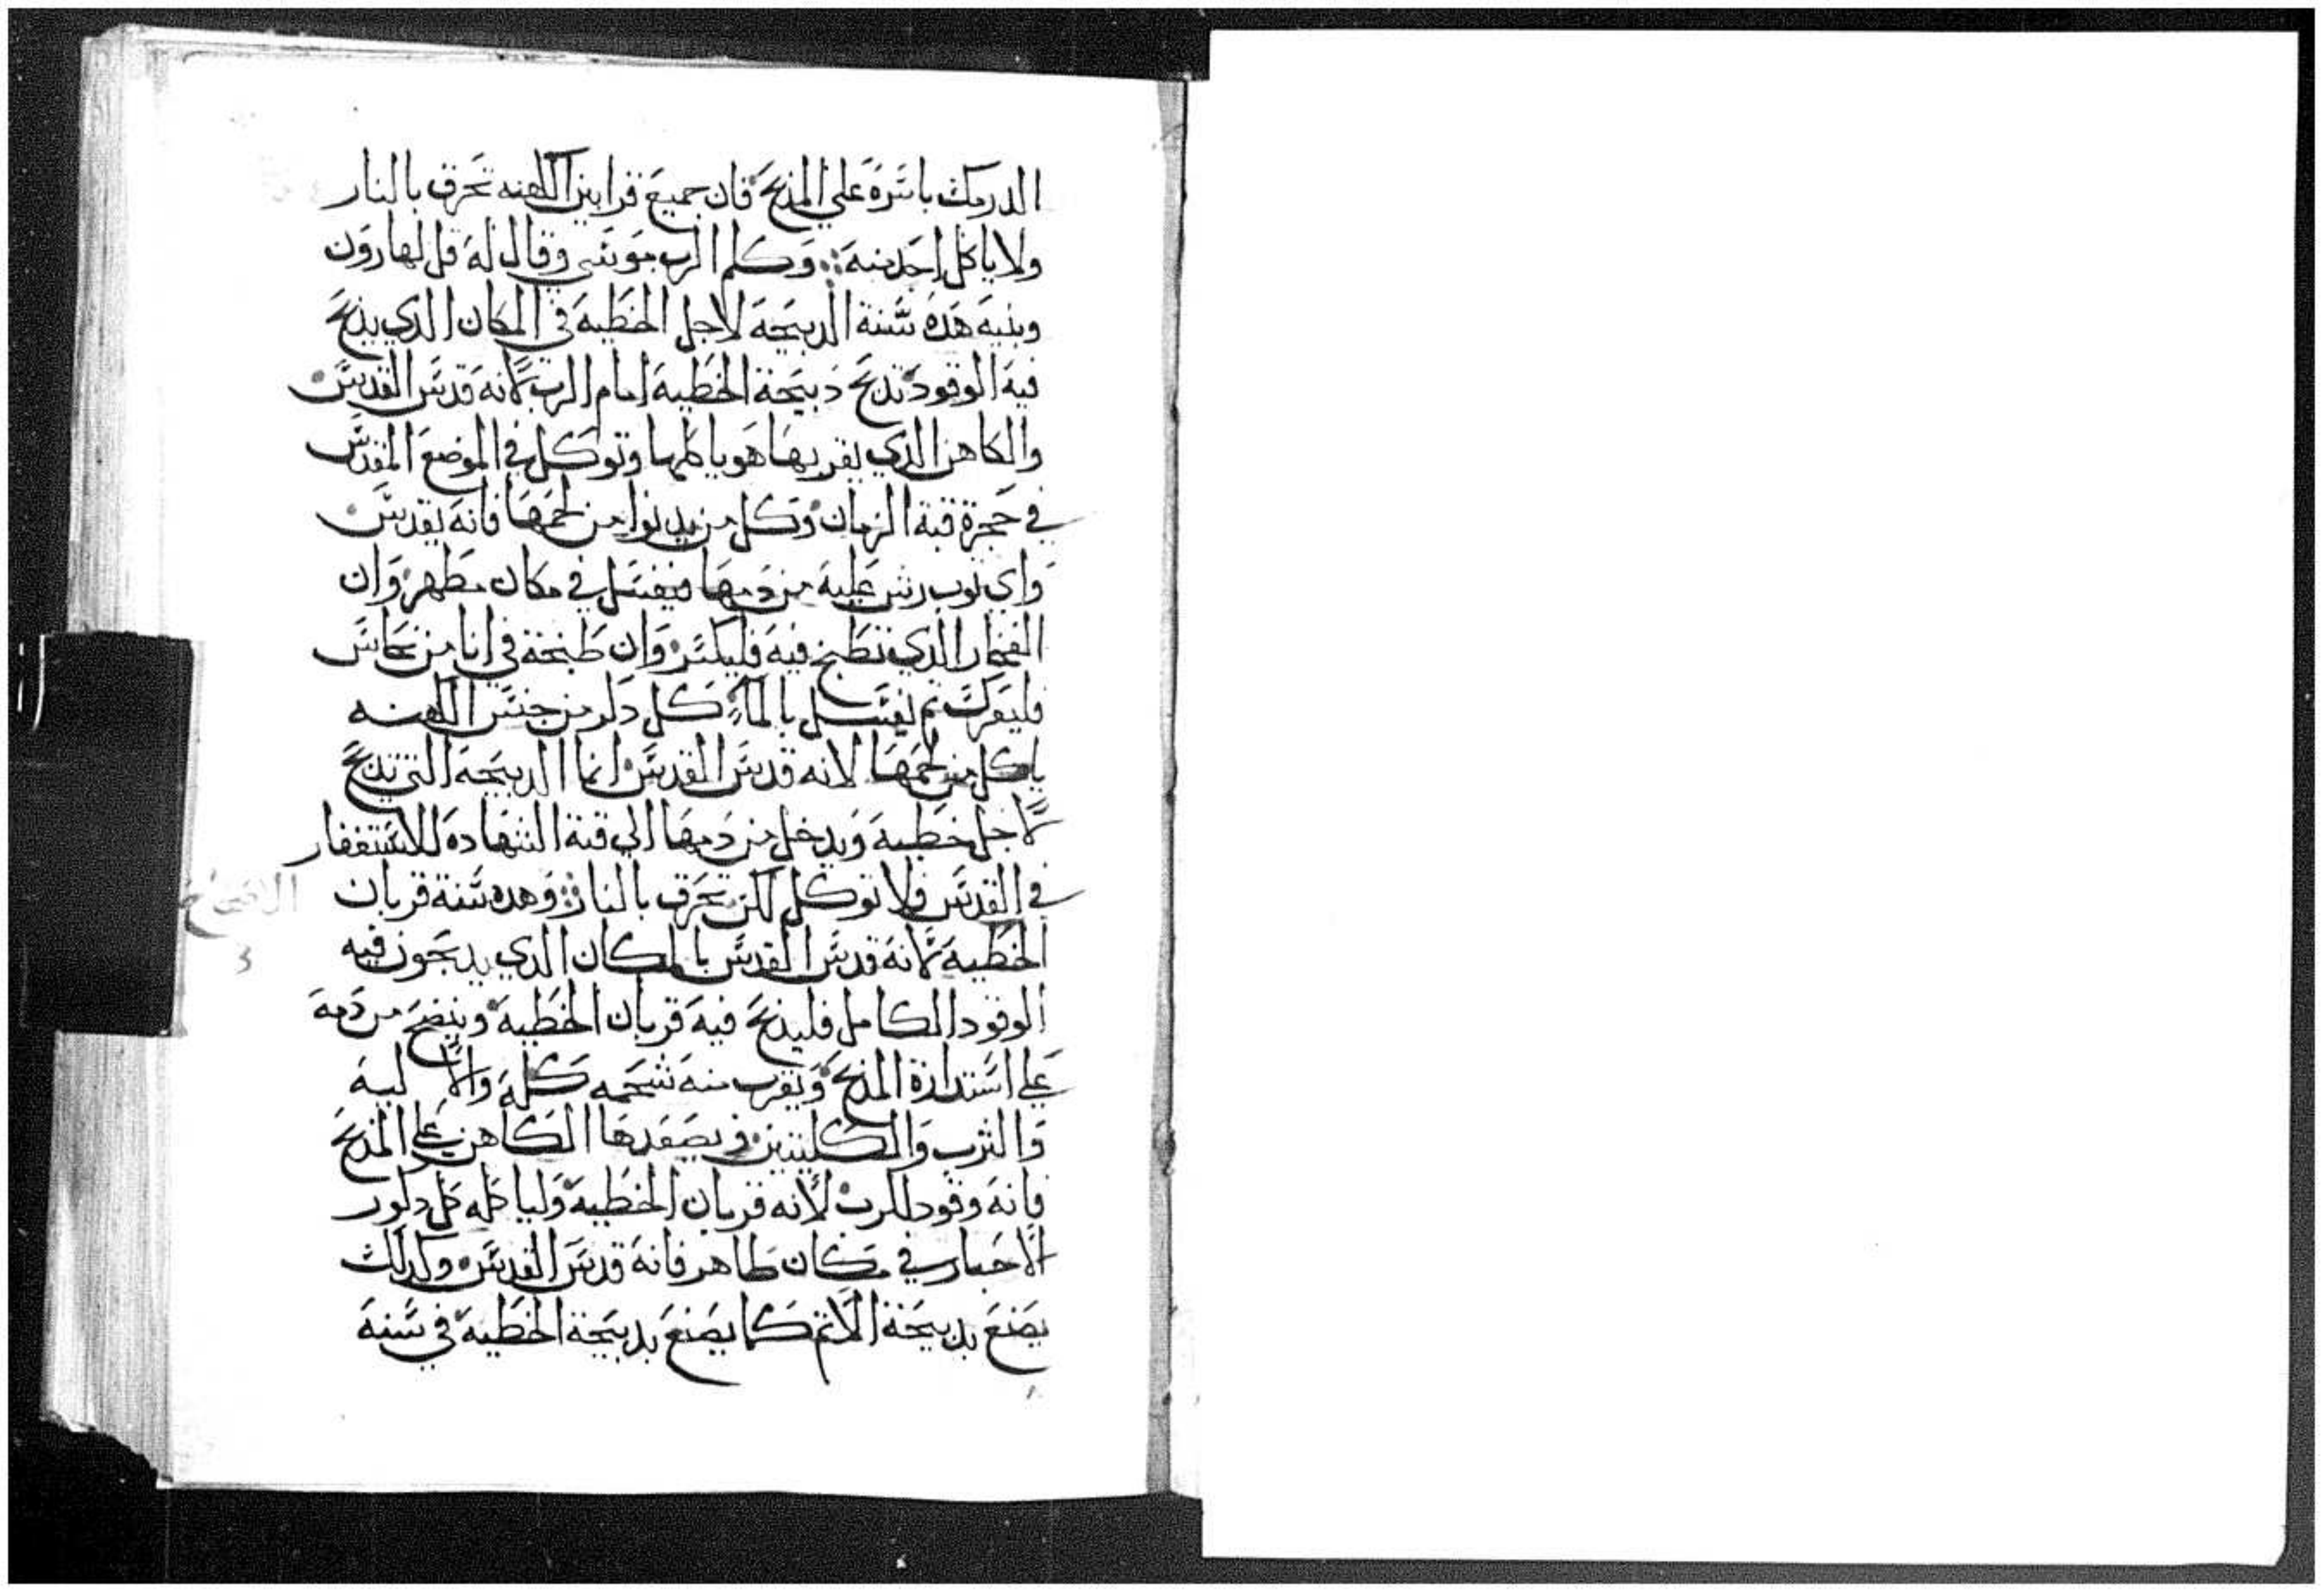 الدرمك باسره علي المذبح فان جميع قرابين الكهنه تحرق بالنار
ولا ياكل احد منه وكلم الرب موسي وقال له قل لهارون
وبنيه هده سنة الدبيحة لاجل الخطيه في المكان الدي يذبح
فيه الوقود تدبح دبيحة الخطيه امام الرب لانه قدس القدس
والكاهن الدي يقربها هو ياكلها وتوكل في الموضع المقدس
في حجرة قبة الزمان وكل من يدنوا من لحمها فانه يقدس
واي توب رش عليه من دمها فيغسل في مكان مطهر وان
الفخار الدي تطبخ فيه فليكسر وان طبخة في انا من نحاس
فليعرك تم يغسل بالماء كل دكر من جنس الكهنه
ياكل من لحمها لانه قدس القدس انما الدبيحه التي تدبح
لاجل خطيه ويدخل من دمها الي قبة الشهاده للاستغفار
في القدس فلا توكل لكن تحرق بالنار وهده سنة قربان
الاصحاح
٤
الخطيه لانه قدس القدس بالمكان الدي يدبحون فيه
الوقود الكامل فليدبح فيه قربان الخطيه وينضح من دمه
علي استدارة المذبح ويقرب منه شحمه كله والاليه
والثرب والكليتين ويصعدها الكاهن علي المذبح
فانه وقود للرب لانه قربان الخطيه ولياكله كل دكور
الاحبار في مكان طاهر فانه قدس القدس وكدلك
يصنع بدبيحة الاتم كما يصنع بدبيحة الخطيه في سنه